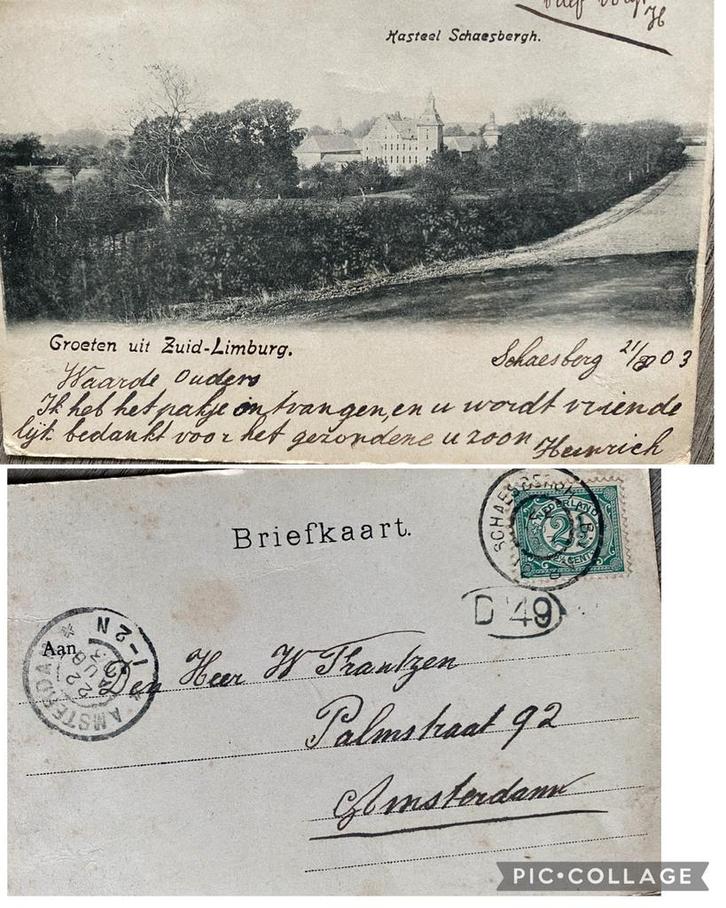 H
Kasteel Schaesbergh.
Groeten uit Zuid-Limburg.
Schaesberg 21/8 03
Waarde Ouders
Ik heb het pakje ontvangen, en u wordt vriende
lijk bedankt voor het gezondene u zoon Heinrich
Briefkaart.
NEDERLAND
2½
CENT
D 49
AMSTERDAM
22 AUG 03
1-2N
Aan
Den Heer W Frantzen
Palmstraat 92
Amsterdam
PIC•COLLAGE